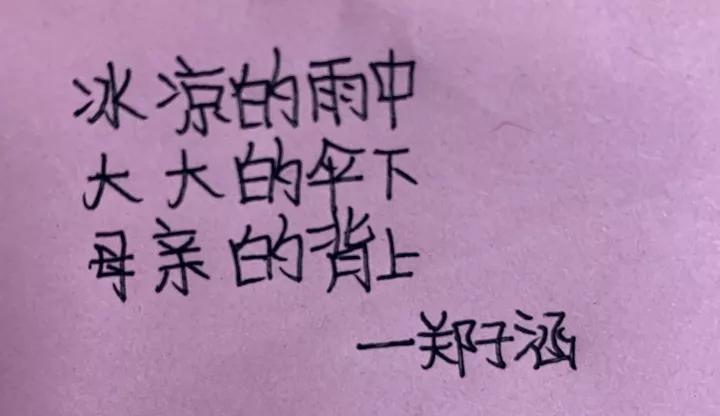 冰凉的雨中
大大的伞下
母亲的背上
一郑子涵